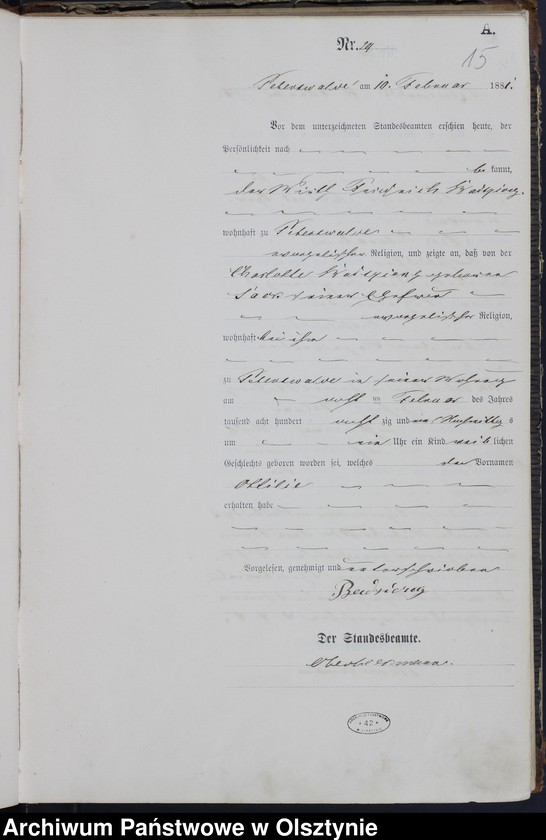 A.
15
Nr. 24
Peterswalde am 10. Februar 1881.
Vor dem unterzeichneten Standesbeamten erschien heute, der
Persönlichkeit nach
be kannt,
der Wirth Friedrich
wohnhaft zu Peterswalde
evangelischer Religion, und zeigte an, daß von der
Charlotte geborenen
seiner Ehefrau
evangelischer Religion,
wohnhaft bei ihm
zu Peterswalde in seiner Wohnung
am acht ten Februar des Jahres
tausend acht hundert acht zig und eins Nachmittag s
um ein Uhr ein Kind weib lichen
Geschlechts geboren worden sei, welches den Vornamen
Ottilie
erhalten habe
Vorgelesen, genehmigt und unterschrieben
Der Standesbeamte.
42
Archiwum Państwowe w Olsztynie